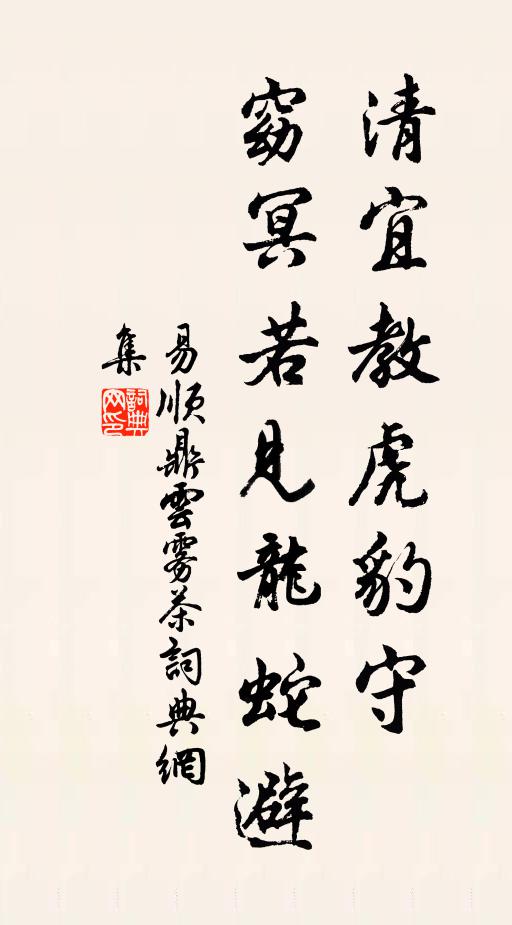 清宜教虎豹守
窈冥若見龍蛇避
易順鼎雲霧茶詞典網
集
詞典网印